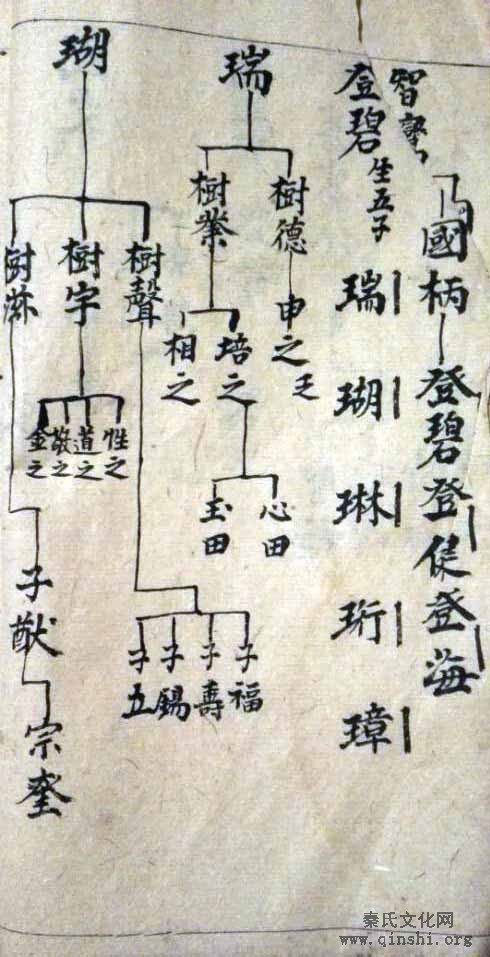 智
國柄
登碧
登俊
登海
登碧生五子
瑞
瑚
琳
珩
璋
瑞
樹德
樹業
申之
培之
相之
心田
玉田
瑚
樹聲
樹字
樹滋
性之
道之
敬之
金之
子福
子壽
子錫
子五
子猷
宗奎
秦氏文化网
www.qinshi.org